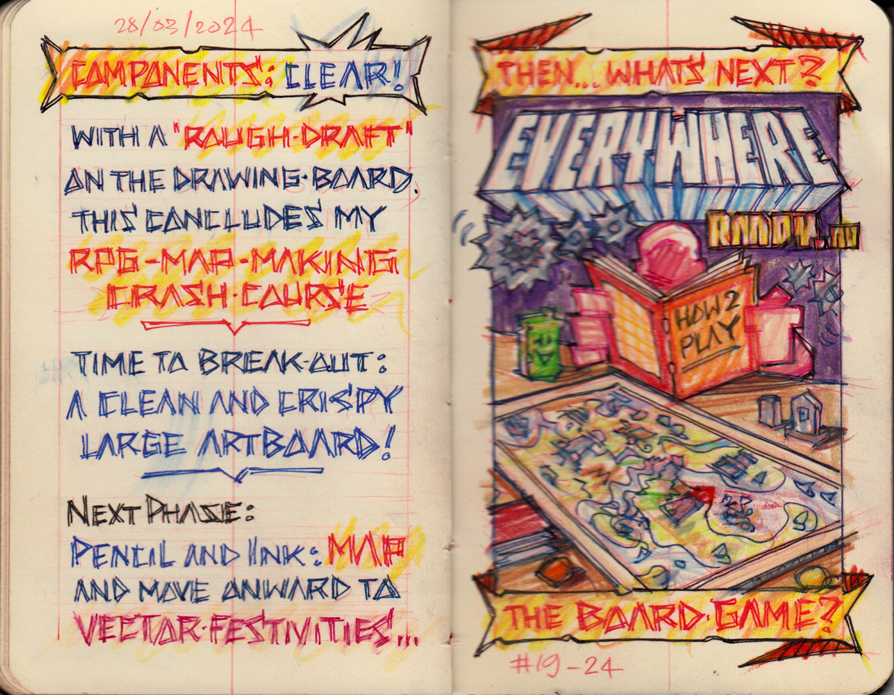 28/03/2024
COMPONENTS: CLEAR!
WITH A "ROUGH-DRAFT"
ON THE DRAWING-BOARD,
THIS CONCLUDES MY
RPG-MAP-MAKING
CRASH-COURSE
TIME TO BREAK-OUT:
A CLEAN AND CRISPY
LARGE ARTBOARD!
NEXT PHASE:
PENCIL AND INK: MAP
AND MOVE ONWARD TO
VECTOR-FESTIVITIES...
THEN... WHATS NEXT?
EVERYWHERE
HOW 2
PLAY
THE BOARD-GAME?
#19-24